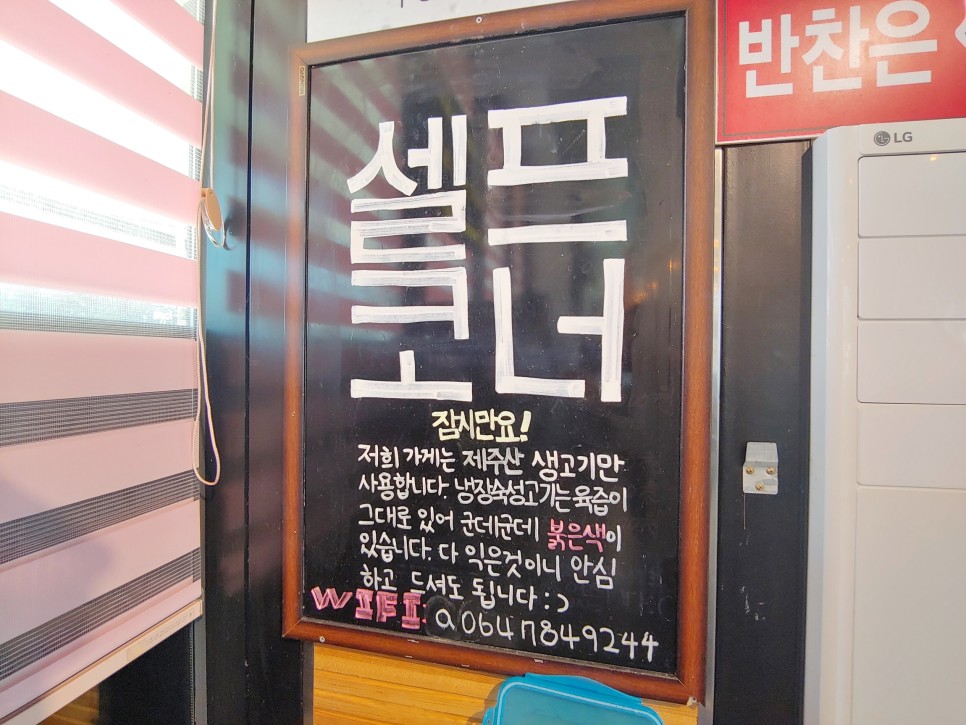 반찬은
LG
셀프
코너
잠시만요!
저희 가게는 제주산 생고기만
사용합니다. 냉장숙성고기는 육즙이
그대로 있어 군데군데 붉은색이
있습니다. 다 익은것이니 안심
하고 드셔도 됩니다 :)
WIFI. a0647849244